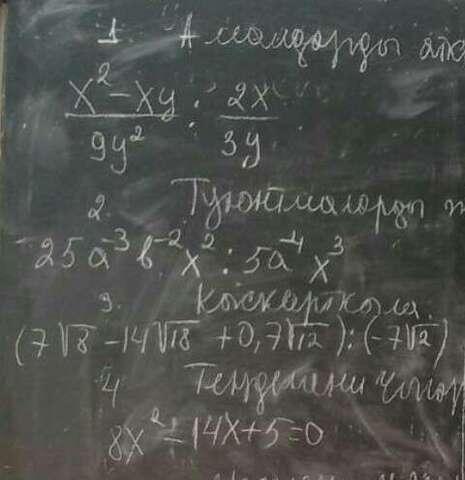 1. Амалдарды атк
x² - xy / 9y² : 2x / 3y
2. Туюнтмаларды
25a⁻³b⁻²x² : 5a⁻⁴x³
3. Кыскарткыла.
(7√8 - 14√18 + 0,7√12) : (-7√2)
4 Теңдемени чыгар
8x² - 14x + 5 = 0